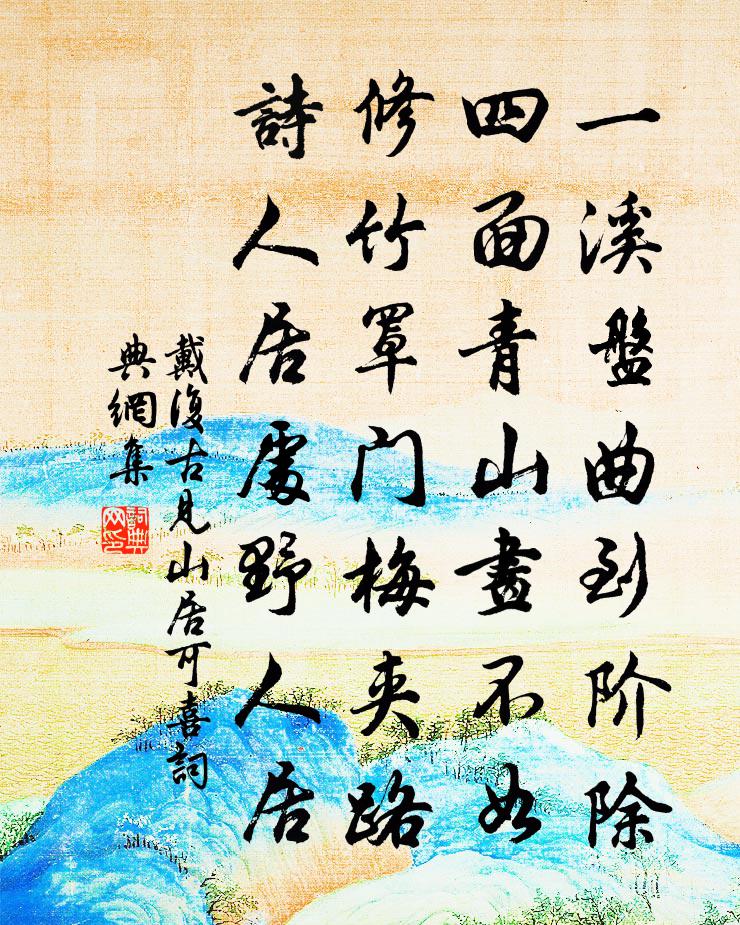 一溪盤曲到阶除
四面青山畫不如
修竹罩门梅夹路
詩人居處野人居
戴復古見山居可喜詞
典網集
詞典
网印